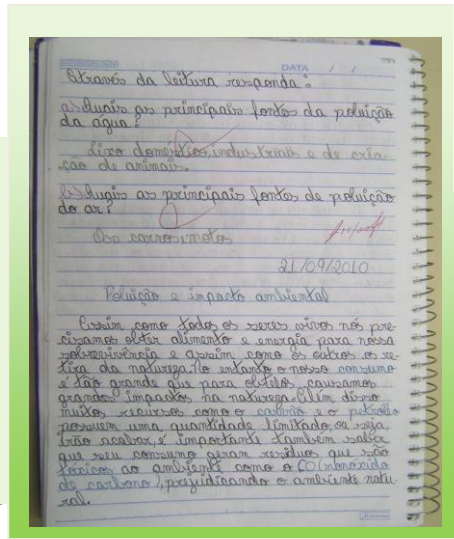 DATA / /
Através da leitura responda:
a) Quais as principais fontes da poluição
da água?
Lixo doméstico, industriais e de cria-
ção de animais.
b) Quais as principais fontes de poluição
do ar?
Os carros, motos
21/09/2010
Poluição e impacto ambiental
Assim como todos os seres vivos nós pre-
cisamos obter alimento e energia para nossa
sobrevivência e assim, como os outros os re-
tira da natureza. No entanto o nosso consumo
é tão grande que para obtelos, causamos
grandes impactos na natureza. Além disso
muitos recursos como o carvão e o petróleo
possuem uma quantidade limitada, ou seja,
irão acabar, e importante também saber
que seu consumo geram resíduos que são
tóxicos ao ambiente como o CO (monóxido
de carbono), prejudicando o ambiente natu-
ral.